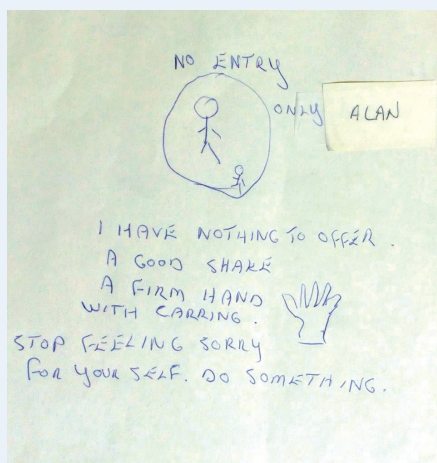 NO ENTRY
ONLY ALAN
I HAVE NOTHING TO OFFER.
A GOOD SHAKE
A FIRM HAND
WITH CARRING.
STOP FEELING SORRY
FOR YOUR SELF. DO SOMETHING.